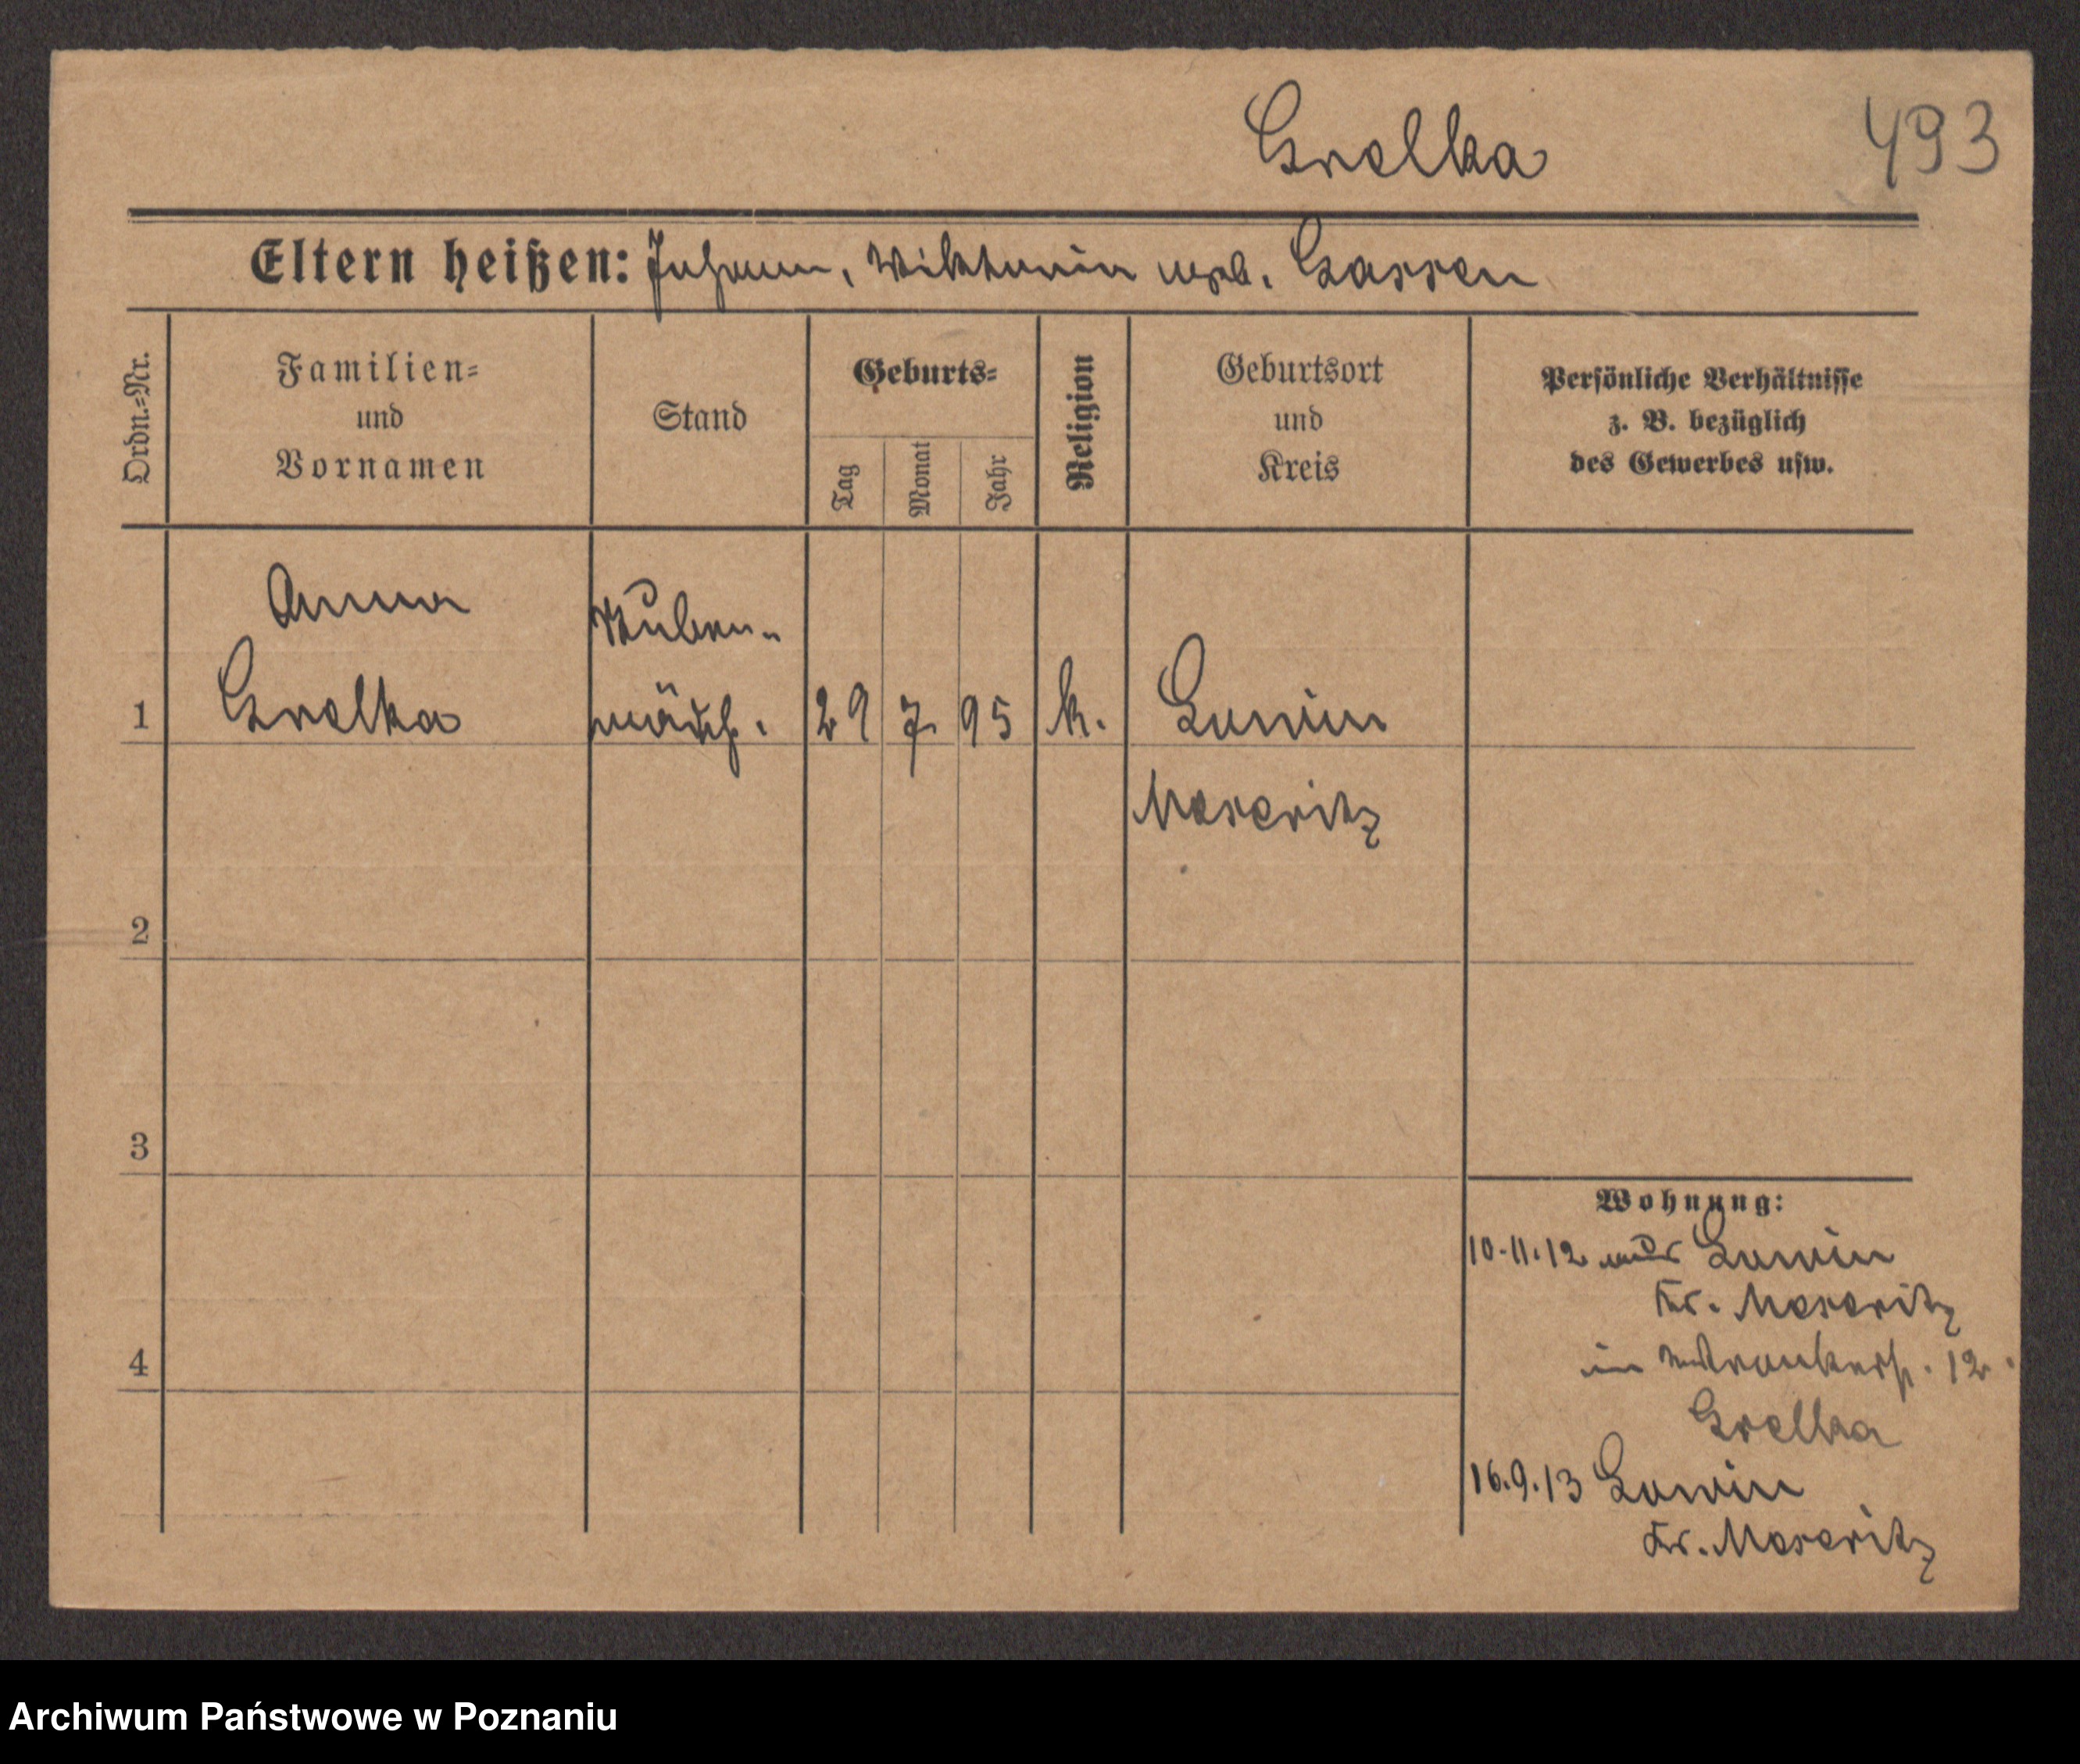 Grelka
493
Eltern heißen: Johann, Wiktoria geb. Gassen
Ordn.=Nr.
Familien=
und
Vornamen
Stand
Geburts=
Tag
Monat
Jahr
Religion
Geburtsort
und
Kreis
Persönliche Verhältnisse
z. B. bezüglich
des Gewerbes usw.
Anna
Grelka
Stuben-
mädch.
1
29
7
95
k.
Lowin
Meseritz
2
3
4
Wohnung:
10.11.12 aus Lowin
Kr. Meseritz
in 12.
Grelka
16.9.13 Lowin
Kr. Meseritz
Archiwum Państwowe w Poznaniu